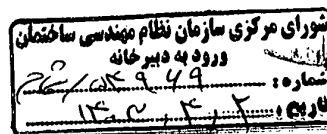 شورای مرکزی سازمان نظام مهندسی ساختمان
ورود به دبیرخانه
شماره: ۰۴۹۶۹ / ش م
تاریخ: ۱۴۰۳,۴,۲